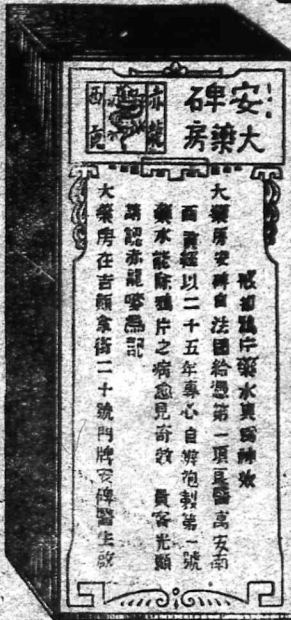 安碑
大藥房
赤龍
西貢
戒却鴉片藥水異常神效
大藥房安碑自法國給憑第一項良醫寓安南
西貢經以二十五年專心自辦炮製第一號
藥水能除鴉片之病愈見奇效 貴客光顧
請認赤龍嘜為記
大藥房在吉顏拿街二十號門牌安碑醫生啟